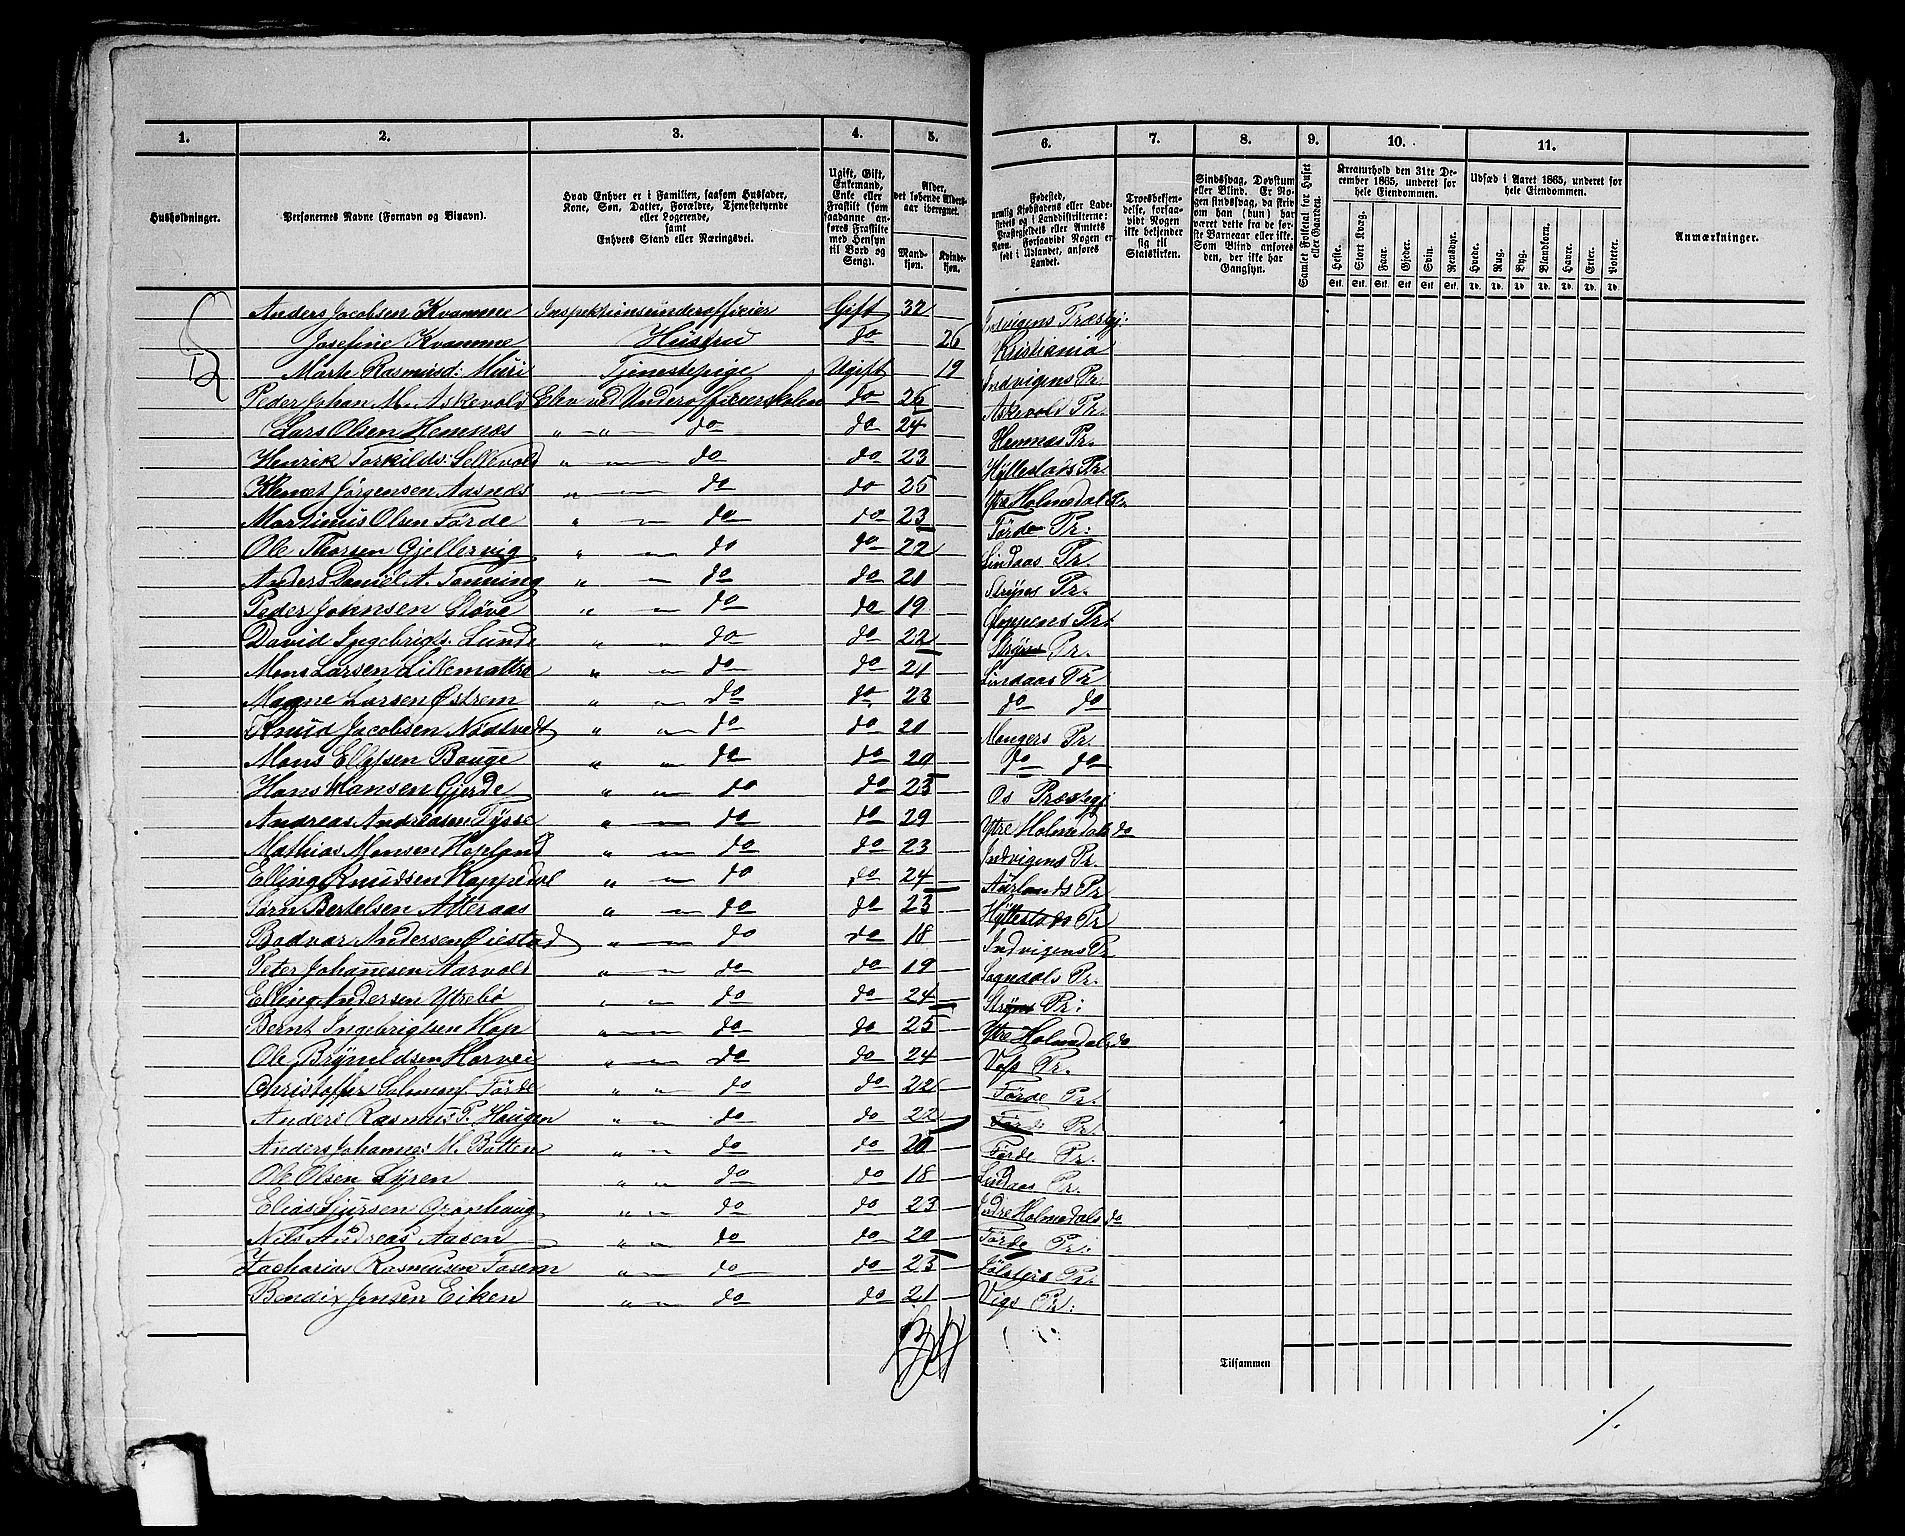 1. 2. 3. 4. 5. 6. 7. 8. 9. 10. 11.
Husholdninger.
Personernes Navne (Fornavn og Tilnavn).
Hvad Enhver er i Familien, saasom Husfader, Kone, Søn, Datter, Forældre, Tjenestetyende eller Logerende, samt Enhvers Stand eller Næringsvei.
Ugift, Gift, Enkemand, Enke eller Fraskilt (som saadanne anføres Fraskilte med Hensyn til Bord og Seng).
Alder, det løbende Aldersaar iberegnet.
Mandkjøn. Kvindekjøn.
Fødested, nemlig Kjøbstadens eller Ladestedets og i Landdistrikterne: Præstegjeldets eller Amtets Navn. Forsaavidt Nogen er født i Udlandet, anføres Landet.
Troesbekjendelse, forsaavidt Nogen ikke bekjender sig til Statskirken.
Sindssvag, Døvstum eller Blind. Er Nogen sindssvag, da skrives om han (hun) har været dette fra de første Barneaar eller ikke. Som Blind anføres den, der ikke har Gangsyn.
Samlet Folketal for Huset eller Gaarden.
Kreaturhold den 31te December 1865, underet for hele Eiendommen.
Heste. Stort Kvæg. Faar. Gjeder. Svin. Rensdyr.
Udsæd i Aaret 1865, underet for hele Eiendommen.
Hvede. Rug. Byg. Blandkorn. Havre. Erter. Poteter.
Stk. Stk. Stk. Stk. Stk. Stk. Td. Td. Td. Td. Td. Td. Td.
Anmærkninger.
Anders Jacobsen Kvamme Inspektionsunderofficier Gift 32 Indvigens Præstgj:
Josefine Kvamme Hustru do 26 Kristiania
Marte Rasmusd: Muri Tjenestepige Ugift 19 Indvigens Pr:
Peder Johan M. Askevold Elev ved Underofficierskolen do 26 Askevold Pr.
Lars Olsen Hennæs " — " — do do 24 Hennæs Pr.
Henrik Torkilds: Sellevold " — do do 23 Hyllestads Pr
Klemet Jørgensen Aasnæs " — do do 25 Ytre Holmedals Pr.
Martinus Olsen Førde " — do do 23 Førde Pr:
Ole Thorsen Gjellervig " — do do 22 Lindaas Pr.
Anders Daniel A. Tonning " — do do 21 Stryns Pr.
Peder Johnsen Støve " — do do 19 Gloppens Pr:
David Ingebrigts. Lunde " " — do do 22 Stryns Pr.
Mons Larsen Lillemattre " " — do do 21 Lindaas Pr
Magne Larsen Østrem " " — do do 23 do do
Knud Jacobsen Nødtvedt " " — do do 21 Mangers Pr.
Mons Ellefsen Bauge " " — do do 20 do do
Hans Hansen Gjerde " " — do do 25 Os Præstegj
Andreas Andreasen Tysse " — do do 29 Ytre Holmedals do
Mathias Monsen Hopland " — do do 23 Indvigens Pr.
Elling Knudsen Kappedal " — do do 24 Aurlands Pr
Sørn Bertelsen Atteraas " — do do 23 Hyllestads Pr
Bodvar Andersen Øiestad " — do do 18 Indvigens Pr
Peter Johannesen Aarvold " — do do 19 Sogndals Pr.
Elling Andersen Ytrebø " " — do do 24 Stryns Pr:
Bernt Ingebrigtsen Hop " — do do 25 Ytre Holmedals do
Ole Brynildsen Horvei " — do do 24 Voss Pr.
Christoffer Salomons. Førde " " — do do 22 Førde Pr.
Anders Rasmus P. Haugen " " — do do 22 Førde Pr.
Anders Johannes M. Botten " " — do do 20 Førde Pr.
Ole Olsen Syren " " — do do 18 Lindaas Pr.
Elias Sjursen Grønhaug " " — do do 23 Indre Holmedals do
Nils Andreas Aasen " " — do do 20 Førde Pr:
Zacharius Rasmusen Fosem " — do do 23 Jølsters Pr.
Bendix Jensen Eiken " " — do do 21 Vigs Pr:
Tilsammen